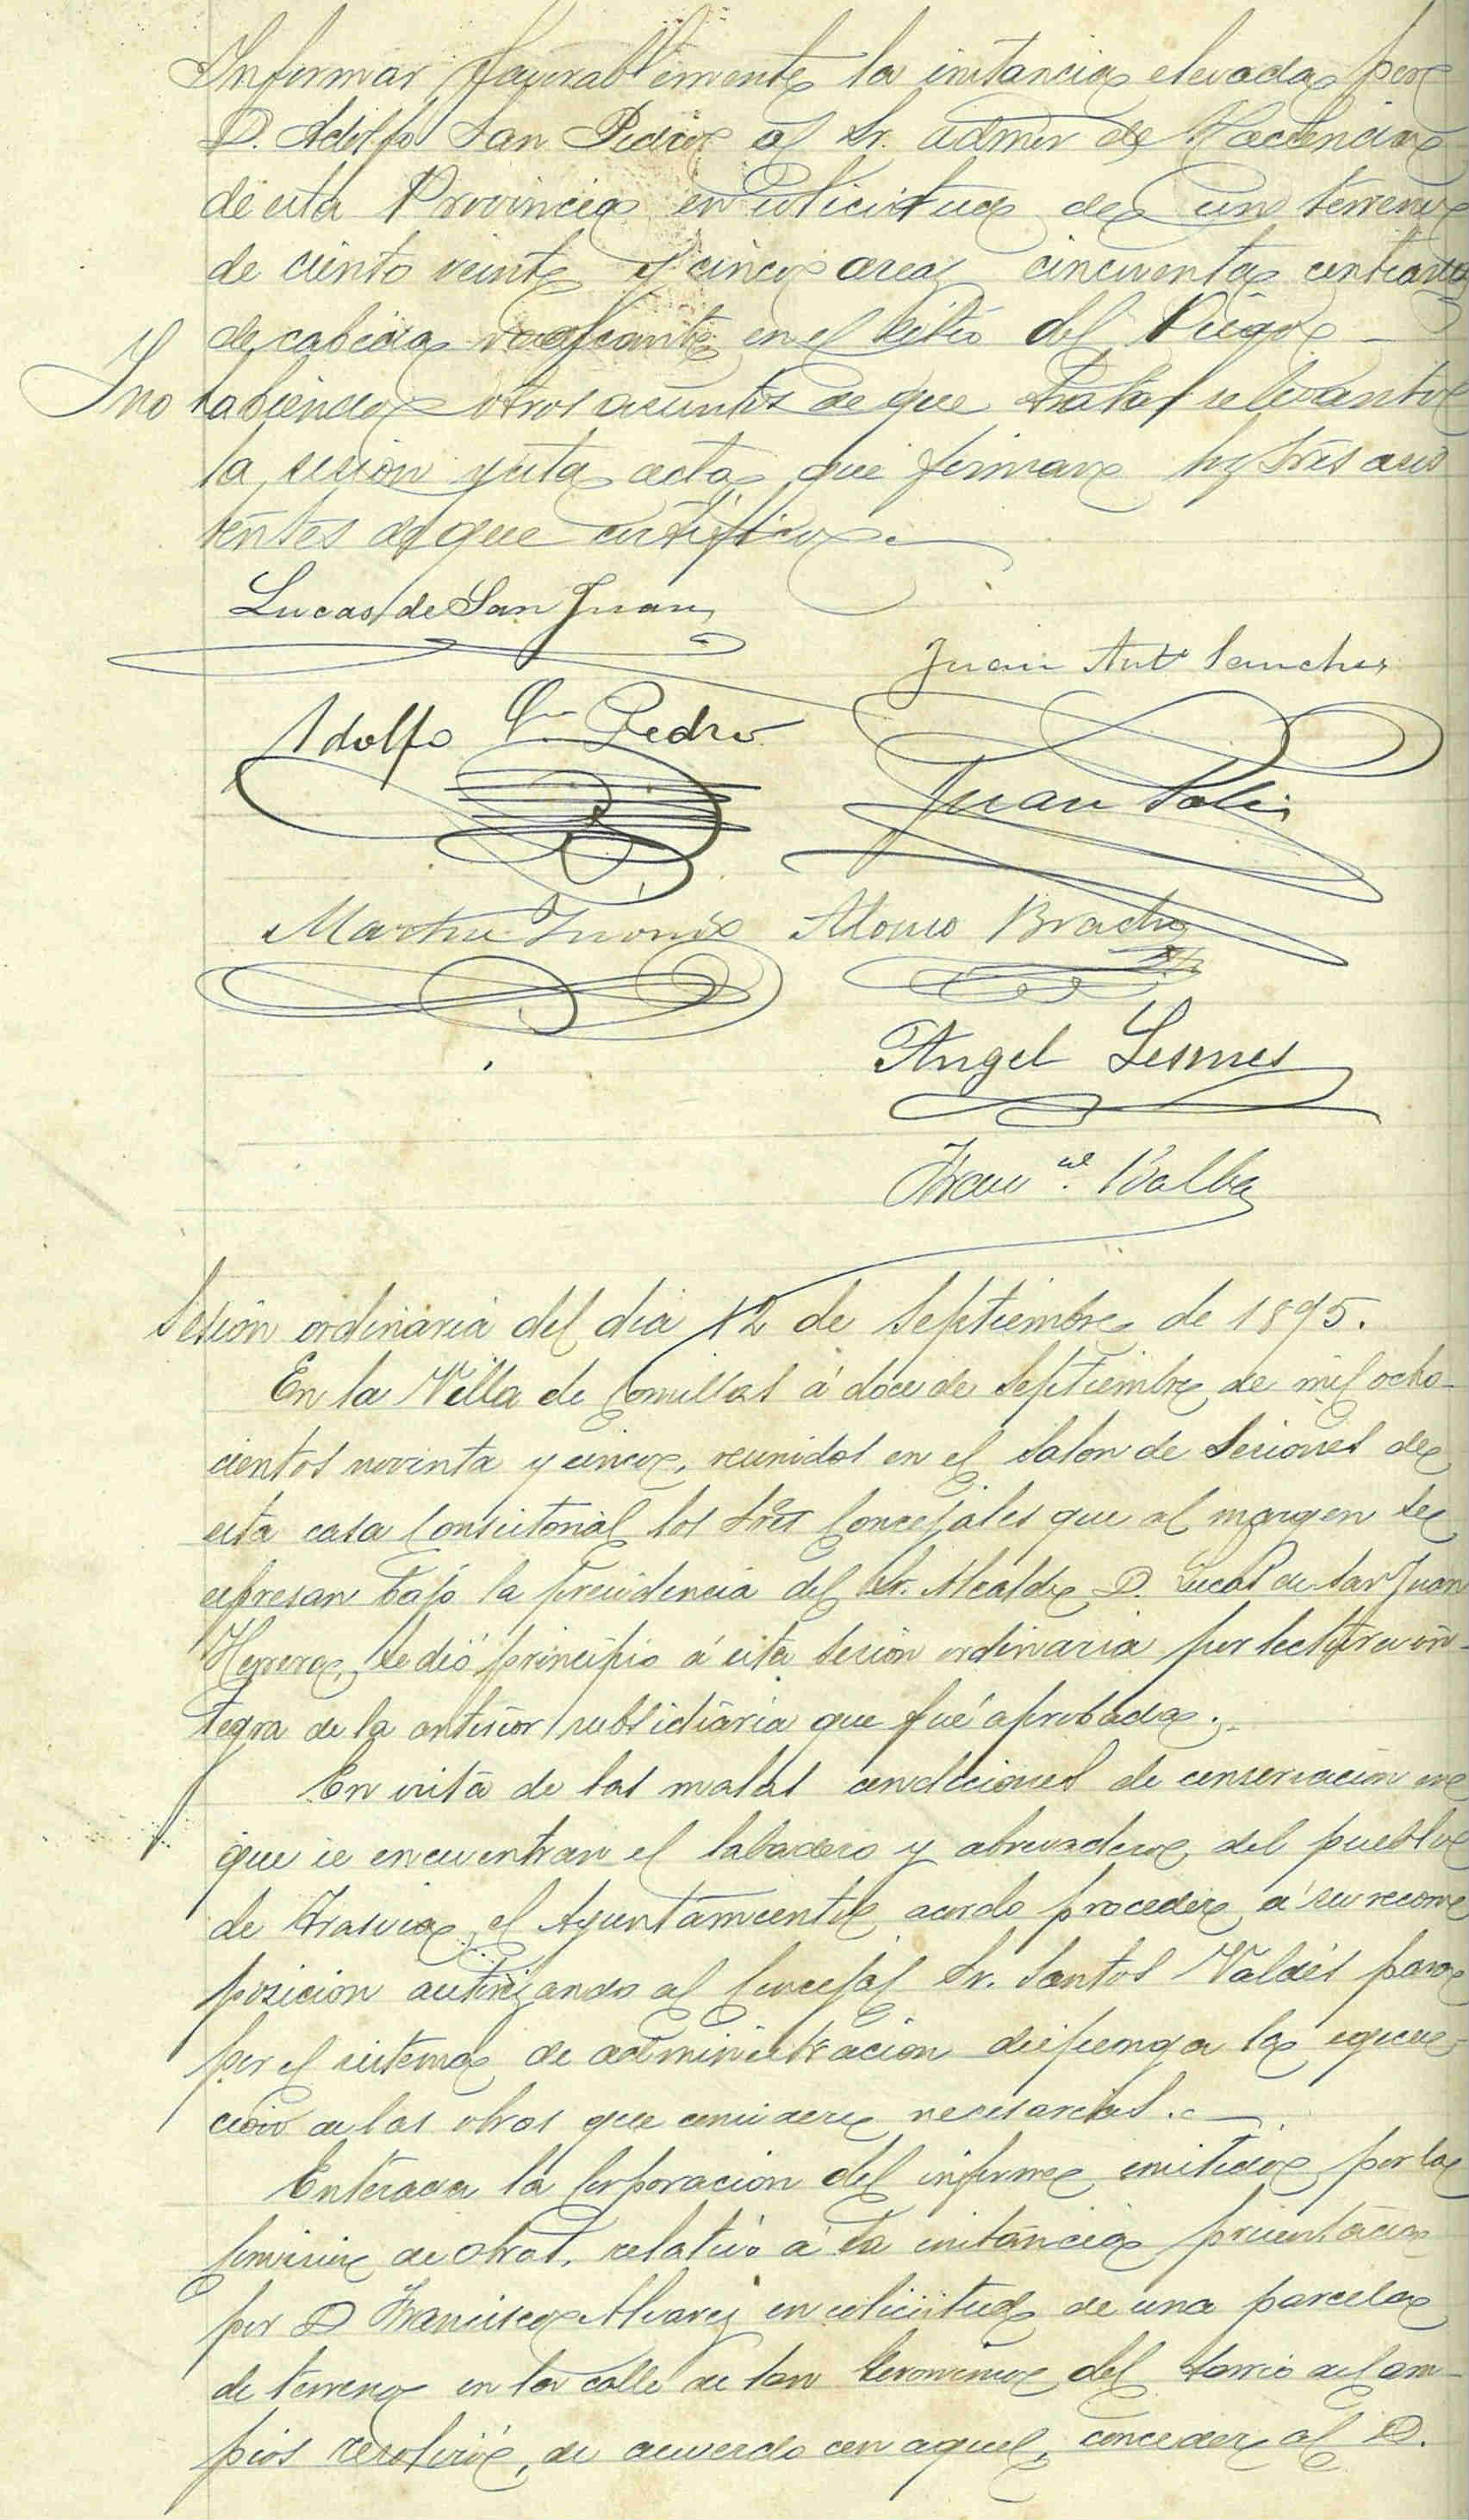 Informar favorablemente la instancia elevada por
D. Adolfo San Pedro al Sr. Admor de Hacienda
de esta Provincia en solicitud de un terreno
de ciento veinte y cinco areas cincuenta centiareas
de cabida en el sitio del
Y no habiendo otros asuntos de que tratar se levantó
la sesión y esta acta que firman los Sres asis
tentes de que certifico.
Lucas de San Juan
Juan Antº Sanchez
Adolfo Sn Pedro
Juan
Martin
Alonso Bracho
Angel Lesmes
Franco. Balba
Sesión ordinaria del dia 12 de Septiembre de 1895.
En la Villa de Comillas á doce de Septiembre de mil ocho-
cientos noventa y cinco, reunidos en el Salon de Sesiones de
esta casa Consistorial los Sres Concejales que al margen se
expresan bajo la presidencia del Sr. Alcalde D. Lucas de San Juan
Herrera, se dió principio á esta sesión ordinaria por lectura ín-
tegra de la anterior subsidiaria que fué aprobada.
En vista de las malas condiciones de conservación en
que se encuentran el labadero y abrevadero del pueblo
de Trasvia, el Ayuntamiento acordo proceder á su recom
posición autorizando al Concejal Sr. Santos Valdés para
por el sistema de administración disponga la ejecu-
ción de las obras que considere necesarias.
Enterada la Corporación del informe emitido por la
Comisión de obras, relativo á la instancia presentada
por D Francisco Alvarez en solicitud de una parcela
de terreno en la calle de San Geronimo del barrio de Cam-
pios resolvió, de acuerdo con aquel, conceder al D.